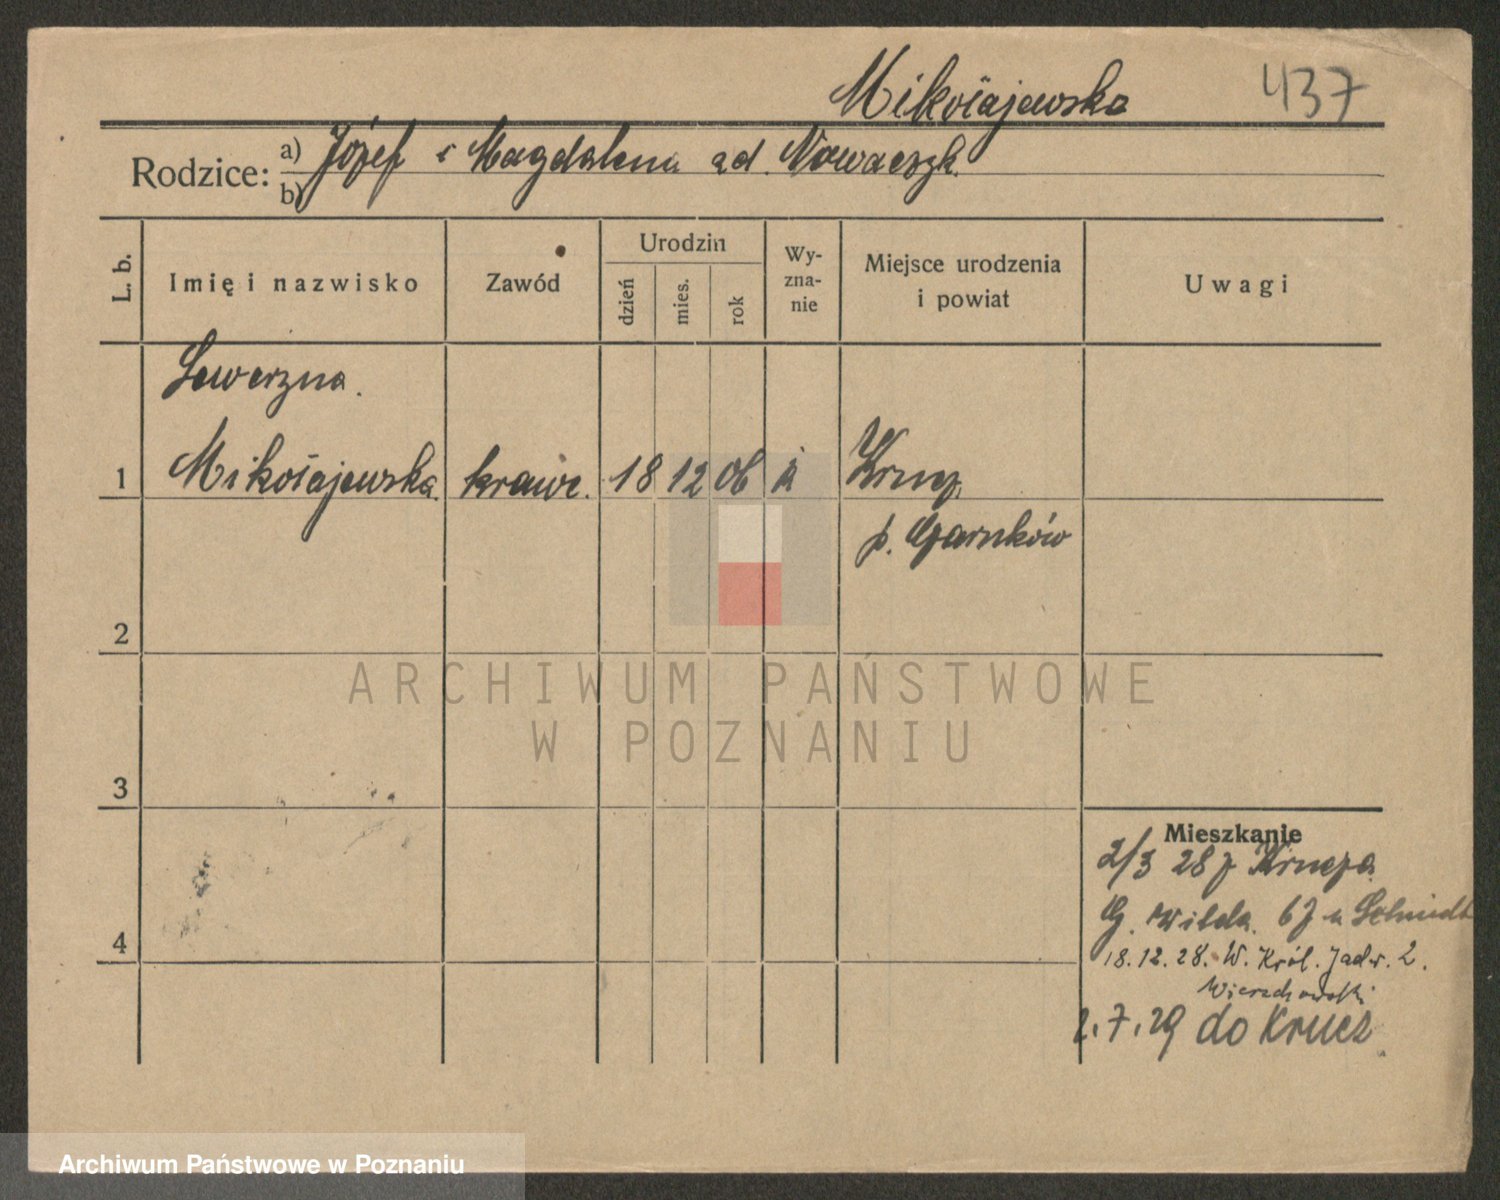 Mikołajewska 437
Rodzice: a) Józef i Magdalena zd. Nowaczyk.
b)
L. b.
Imię i nazwisko
Zawód
Urodzin
dzień
mies.
rok
Wy-
zna-
nie
Miejsce urodzenia
i powiat
Uwagi
Sewerzna.
1 Mikołajewska krawc. 18 12 06 k Krucz
p. Czarnków
2
ARCHIWUM PAŃSTWOWE
W POZNANIU
3
Mieszkanie
2/3 28 z Krucza
G. Wilda 67 u Schmidt
4
18.12.28. W. Król. Jadw. 2.
2.7.29 do Krucz
Archiwum Państwowe w Poznaniu